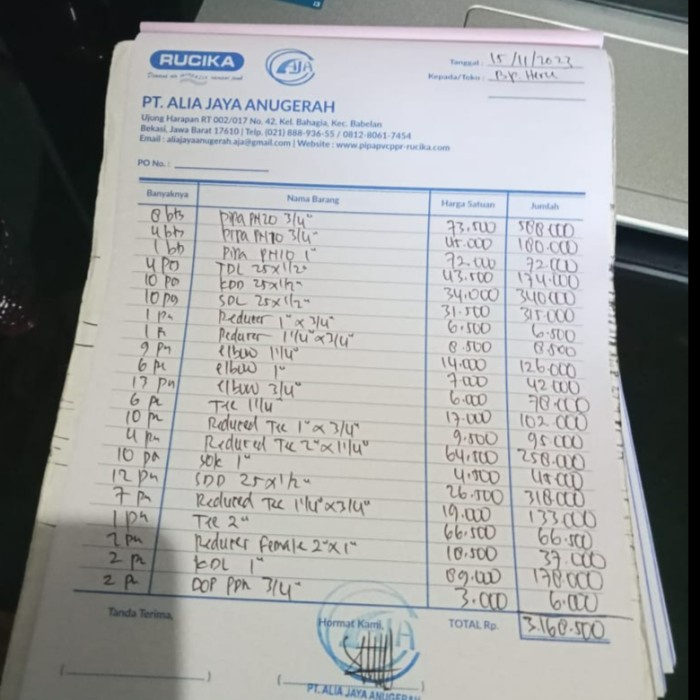 RUCIKA
AJA
Tanggal : 15/11/2023
Kepada/Toko : Bp. Heru
PT. ALIA JAYA ANUGERAH
Ujung Harapan RT 002/017 No. 42, Kel. Bahagia, Kec. Babelan
Bekasi, Jawa Barat 17610 | Telp. (021) 888-936-55 / 0812-8061-7454
Email : aliajayaanugerah.aja@gmail.com | Website : www.pipapvcppr-rucika.com
PO No. :
Banyaknya Nama Barang Harga Satuan Jumlah
8 bts Pipa PN20 3/4" 73.500 588.000
4 bts Pipa PN10 3/4" 45.000 180.000
1 bt Pipa PN10 1" 72.000 72.000
4 pc TDL 25x1/2" 43.500 174.000
10 pc KDD 25x1/2" 34.000 340.000
10 pc SDL 25x1/2" 31.500 315.000
1 pc Reducer 1"x3/4" 6.500 6.500
1 pc Reducer 1 1/4"x3/4" 8.500 8.500
9 pc elbow 1 1/4" 14.000 126.000
6 pc elbow 1" 7.000 42.000
13 pc elbow 3/4" 6.000 78.000
6 pc Tee 1 1/4" 17.000 102.000
10 pc Reduced Tee 1"x3/4" 9.500 95.000
4 pc Reduced Tee 2"x1 1/4" 64.500 258.000
10 pc sok 1" 4.500 45.000
12 pc SDD 25x1/2" 26.500 318.000
7 pc Reduced Tee 1 1/4"x3/4" 19.000 133.000
1 pc Tee 2" 66.500 66.500
2 pc Reducer Female 2"x1" 18.500 37.000
2 pc KDL 1" 89.000 178.000
2 pc DOP PPR 3/4" 3.000 6.000
Tanda Terima, Hormat Kami, TOTAL Rp. 3.168.500
PT. ALIA JAYA ANUGERAH